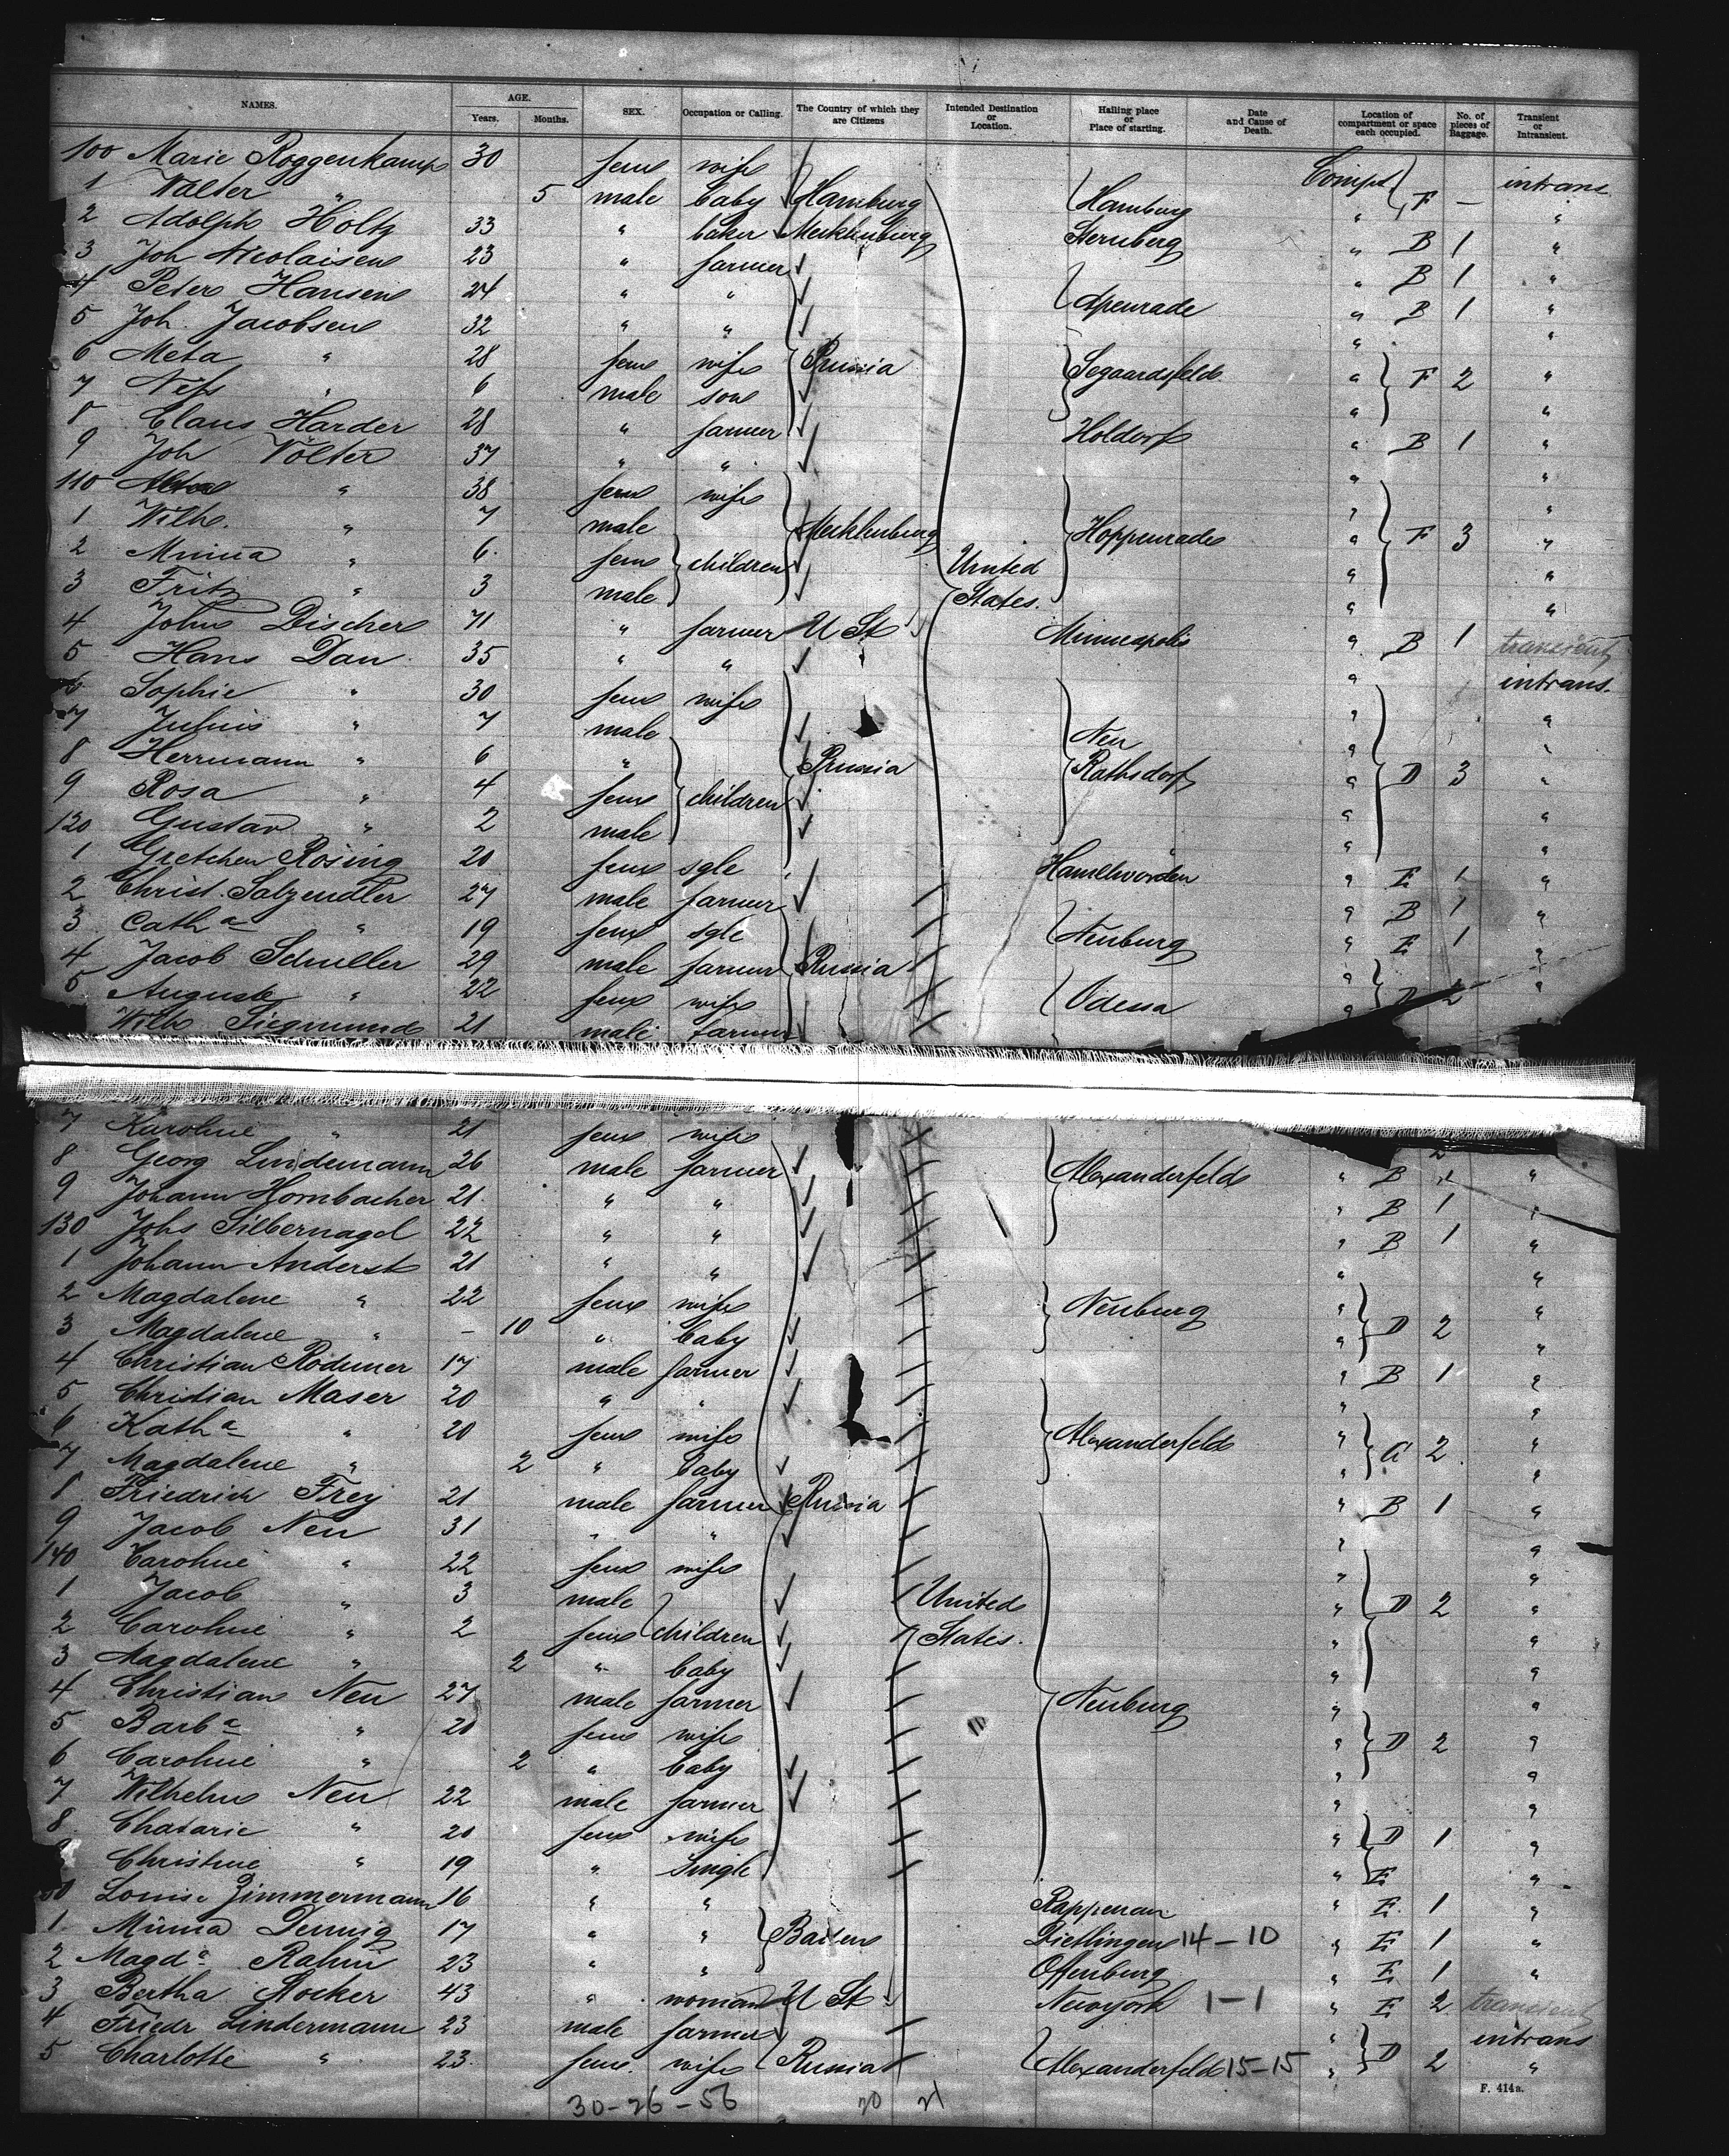 NAMES. AGE. Years. Months. SEX. Occupation or Calling. The Country of which they are Citizens Intended Destination or Location. Hailing place or Place of starting. Date and Cause of Death. Location of compartment or space each occupied. No. of pieces of Baggage. Transient or Intransient.
100 Marie Roggenkamp 30 fem wife intrans
1 Walter " 5 male baby Hamburg Hamburg F — "
2 Adolph Holtz 33 " baker Mecklenburg Sternberg " B 1 "
3 Joh Nicolaisen 23 " farmer " B 1 "
4 Peter Hansen 24 " " Apenrade " B 1 "
5 Joh. Jacobsen 32 " " " "
6 Meta " 28 fem wife Prussia Segaardsfeld " F 2 "
7 " 6 male son " "
8 Claus Harder 28 " farmer Holdorf " B 1 "
9 Joh Völter 37 " " " "
110 " 38 fem wife " "
1 Wilh. " 7 male Mecklenburg Hoppenrade " F 3 "
2 Minna " 6 fem children United " "
3 Fritz " 3 male States. " "
4 John Discher 71 " farmer U St Minneapolis " B 1 transient
5 Hans Dau 35 " " " intrans.
6 Sophie " 30 fem wife " "
7 Julius " 7 male Neu " "
8 Herrmann " 6 " Prussia Rathsdorf " D 3 "
9 Rosa " 4 fem children " "
120 Gustav " 2 male " "
1 Gretchen Rösing 20 fem sgle Hamelwörden " E 1 "
2 Christ. Salzendler 27 male farmer " B 1 "
3 Catha " 19 fem sgle Neuburg " E 1 "
4 Jacob Schuller 29 male farmer Russia " "
5 Auguste " 22 fem wife Odessa " D 2 "
Wilh Siegmund 21 male farmer
7 Karoline " 21 fem wife
8 Georg Lindemann 26 male farmer Alexanderfeld " B 1 "
9 Johann Hornbacher 21 " " " B 1 "
130 Johs Silbernagel 22 " " " B 1 "
1 Johann Anderst 21 " " " "
2 Magdalene " 22 fem wife Neuburg " "
3 Magdalene " – 10 " baby " D 2 "
4 Christian Rodumer 17 male farmer " B 1 "
5 Christian Maser 20 " " " "
6 Katha " 20 fem wife Alexanderfeld " a 2 "
7 Magdalene " 2 " baby " "
8 Friedrich Frey 21 male farmer Russia " B 1 "
9 Jacob Neu 31 " " " "
140 Caroline " 22 fem wife " "
1 Jacob " 3 male United " D 2 "
2 Caroline " 2 fem children States. " "
3 Magdalene " 2 " baby " "
4 Christian Neu 27 male farmer Neuburg " "
5 Barba " 20 fem wife " D 2 "
6 Caroline " 2 " baby " "
7 Wilhelm Neu 22 male farmer " "
8 Chatarie " 20 fem wife " D 1 "
Christine " 19 " single " E "
Louise Zimmermann 16 " " Rappenau " E 1 "
1 Minna Dennig 17 " " Baden Dietlingen 14–10 " E 1 "
2 Magda Rahm 23 " " Offenburg " E 1 "
3 Bertha Stocker 43 " woman U St Newyork 1–1 " E 2 transient
4 Friedr Lindermann 23 male farmer " intrans
5 Charlotte " 23 fem. wife Russia Alexanderfeld 15–15 " D 2 "
30–26–56 20 21
F. 414a.